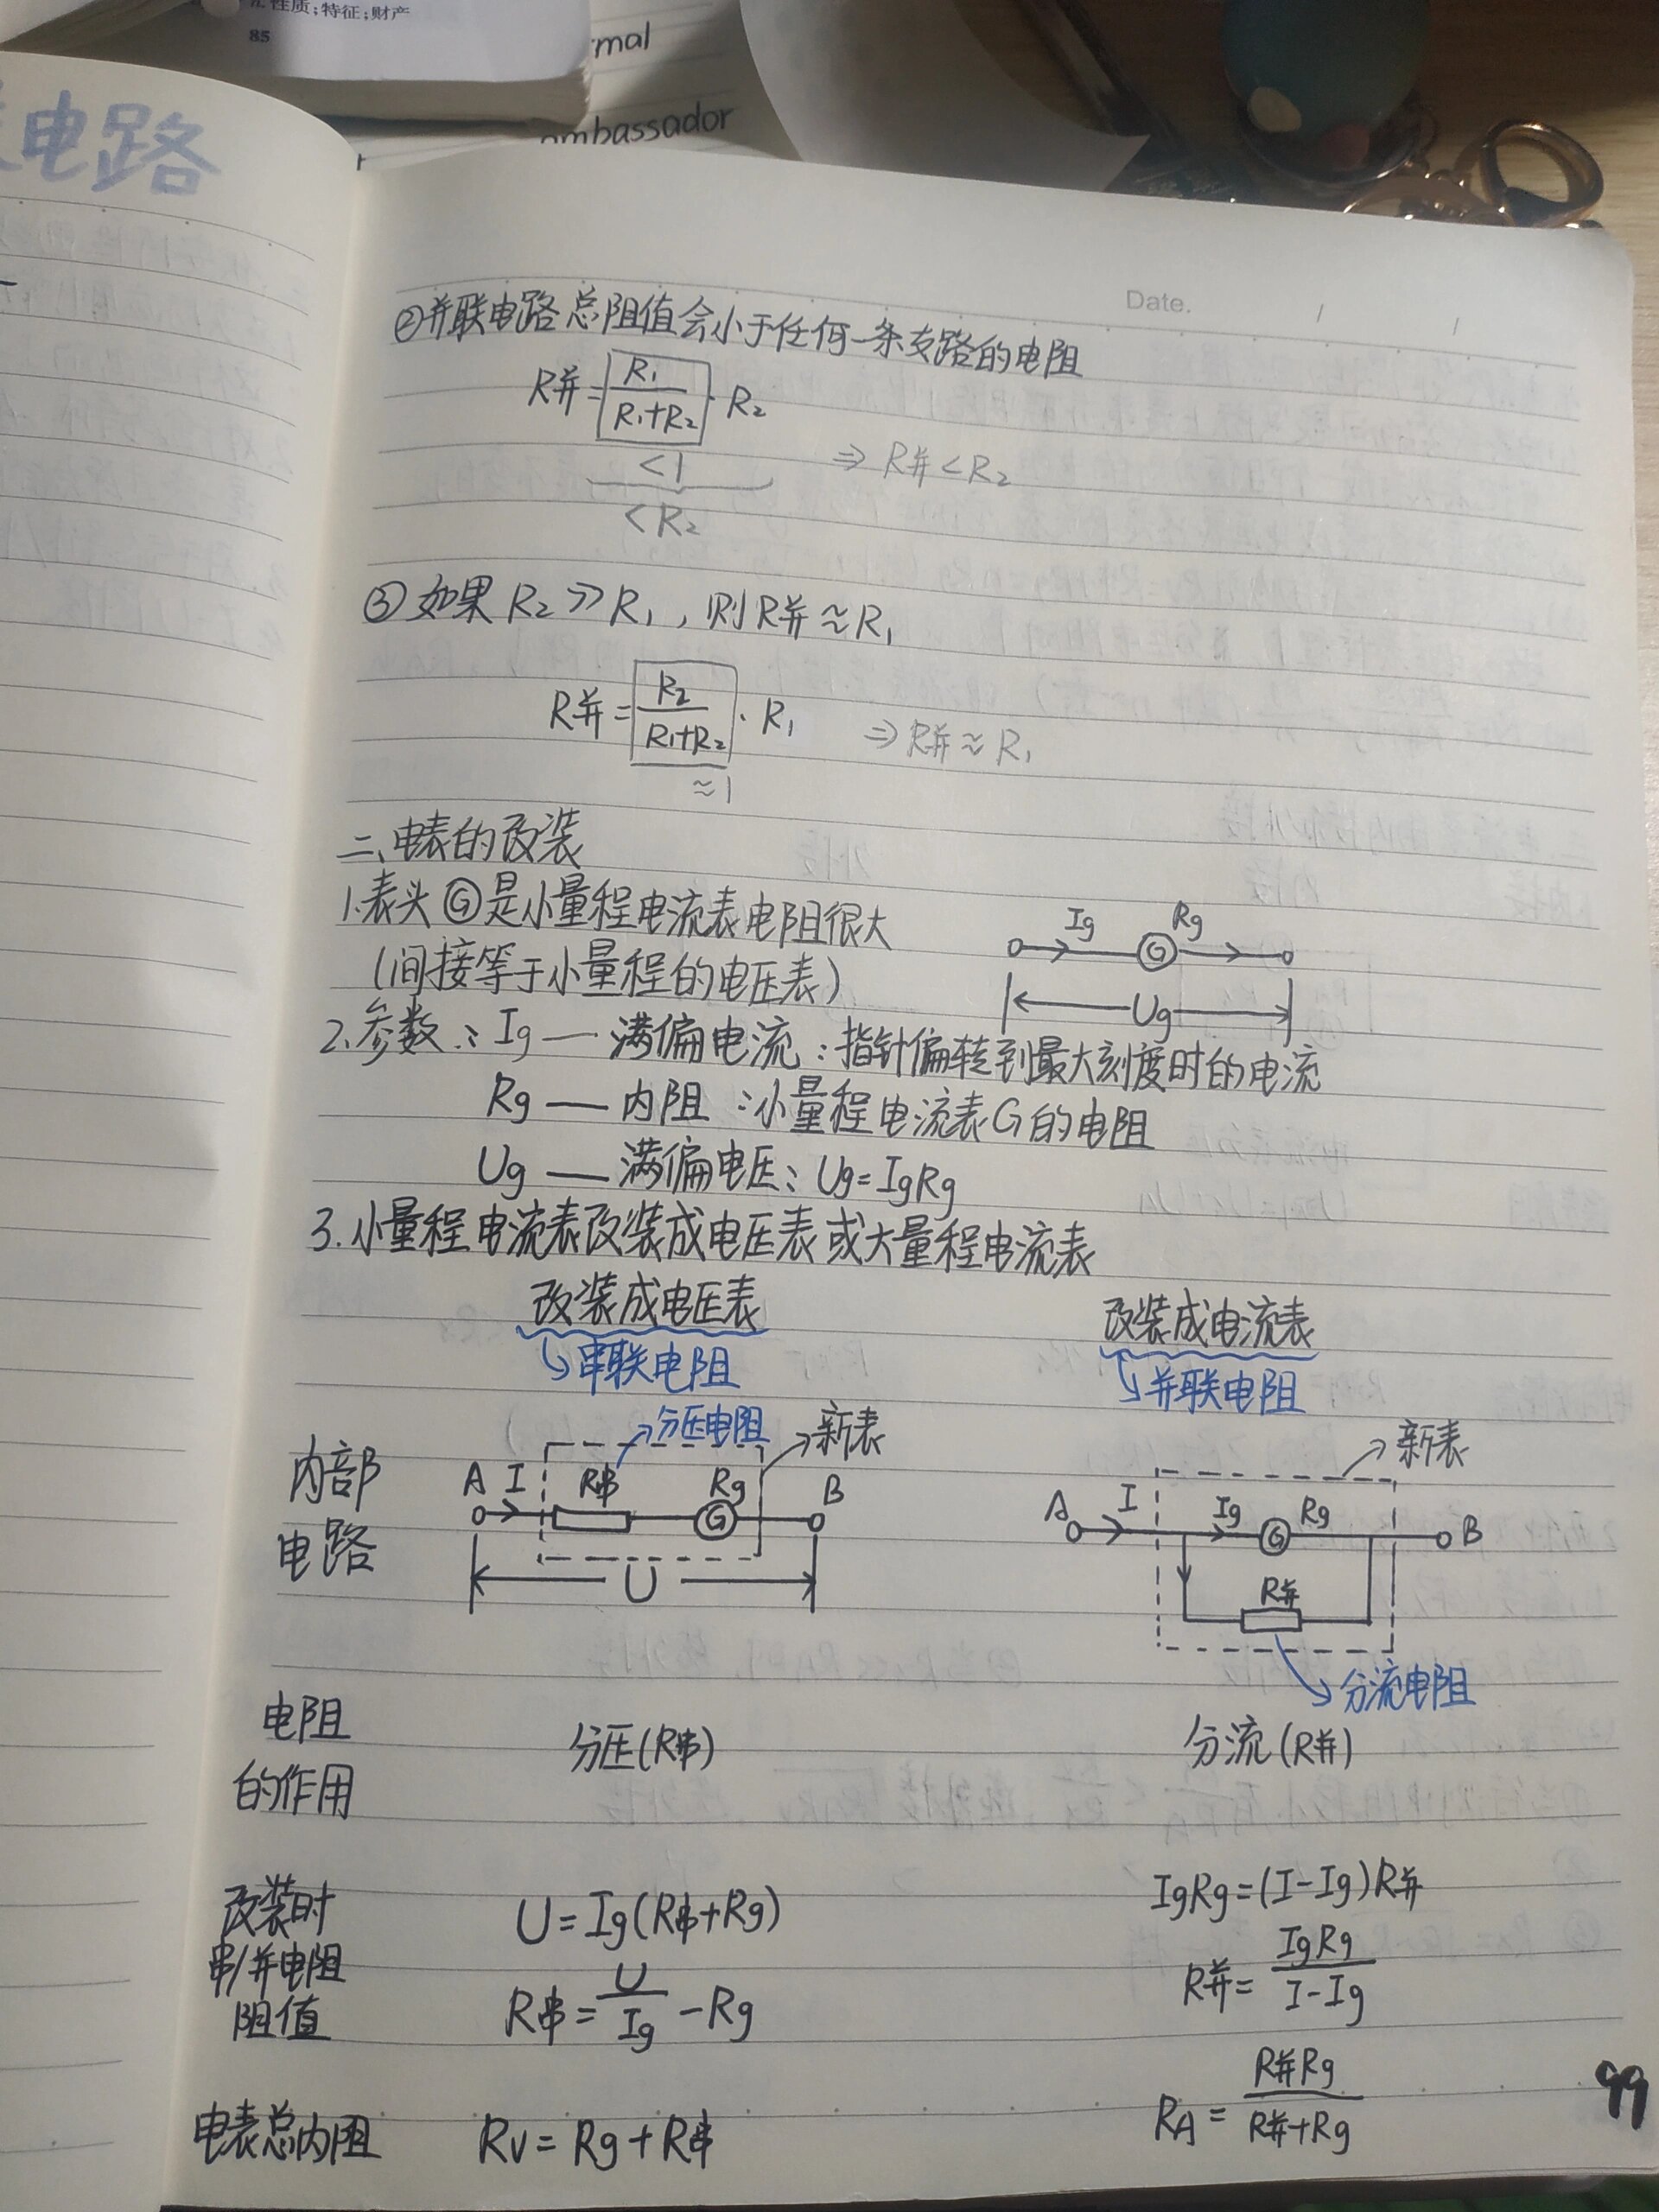 性质;特征;财产
85
rmal
ambassador
电路
Date. / /
②并联电路总阻值会小于任何一条支路的电阻
R并=R₁/(R₁+R₂)·R₂
<1
⇒ R并<R₂
<R₂
③如果 R₂≫R₁,则R并≈R₁
R并=R₂/(R₁+R₂)·R₁ ⇒R并≈R₁
≈1
二、电表的改装
1.表头Ⓖ是小量程电流表电阻很大
Ig Rg
G
(间接等于小量程的电压表)
Ug
2.参数:Ig—满偏电流:指针偏转到最大刻度时的电流
Rg—内阻:小量程电流表G的电阻
Ug—满偏电压:Ug=IgRg
3.小量程电流表改装成电压表或大量程电流表
改装成电压表 改装成电流表
串联电阻 并联电阻
分压电阻 新表 新表
内部
电路
A I R串 Rg B
G
U
A I Ig Rg B
G
R并
分流电阻
电阻
的作用
分压(R串) 分流(R并)
改装时
串/并电阻
阻值
U=Ig(R串+Rg) IgRg=(I-Ig)R并
R串=U/Ig-Rg R并=IgRg/(I-Ig)
电表总内阻 RV=Rg+R串 RA=R并Rg/(R并+Rg)
99